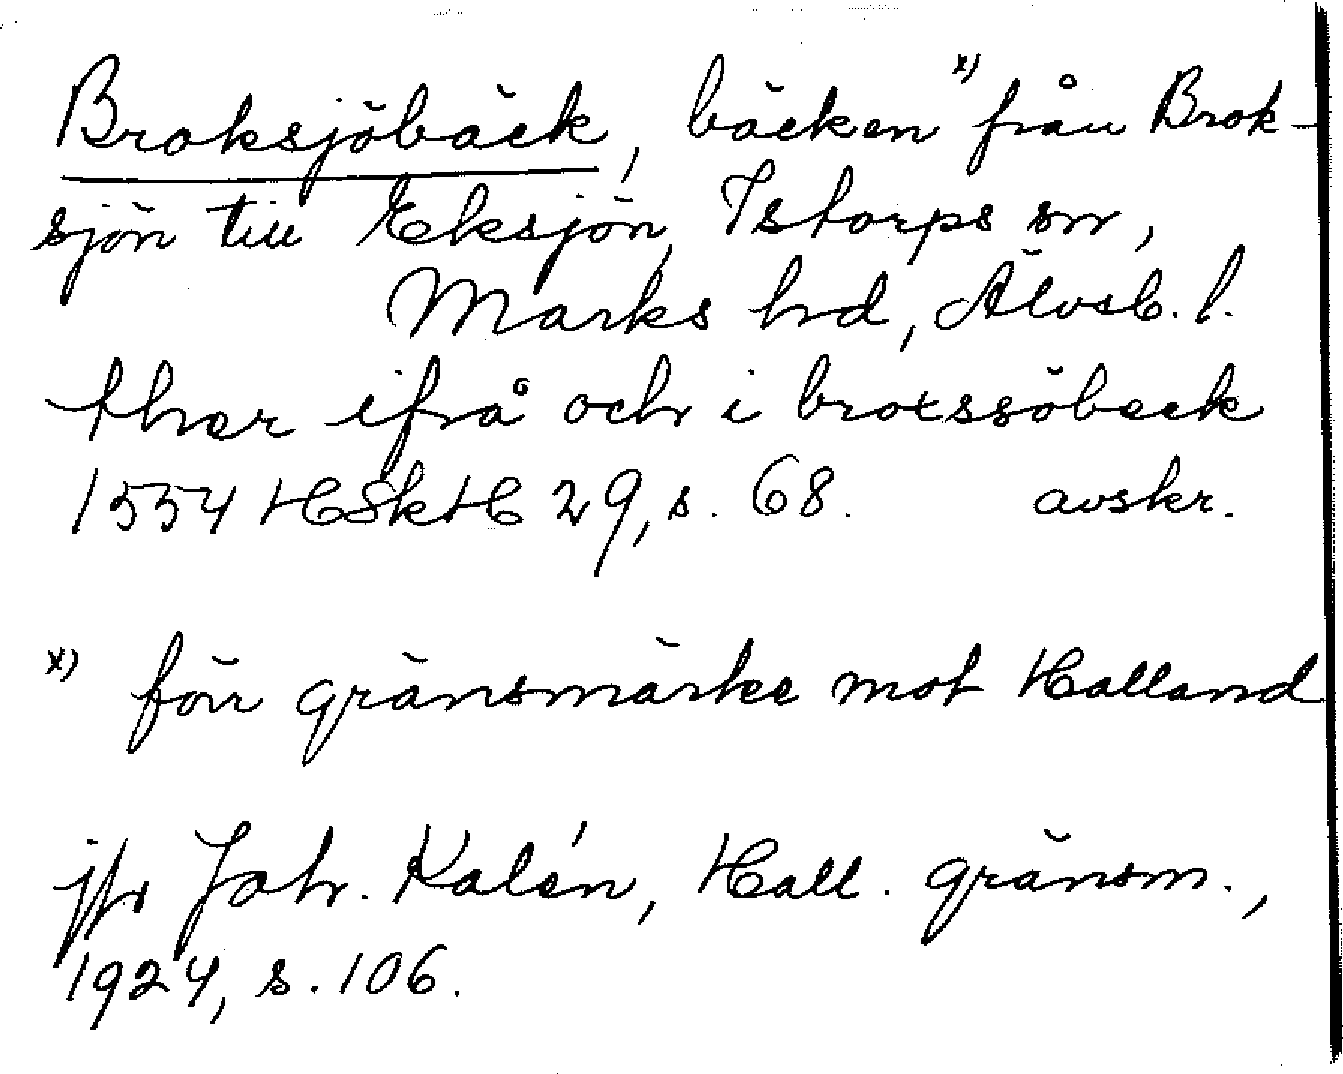 Broksjöbäck, bäcken x) från Brok-
sjön till Eksjön, Istorps sn,
Marks hd, Älvsb. l.
ther ifrå och i broxssöbeck
1554 HSkH 29, s. 68. avskr.
x) förr gränsmärke mot Halland
jfr Joh. Kalén, Hall. gränsm.,
1924, s. 106.